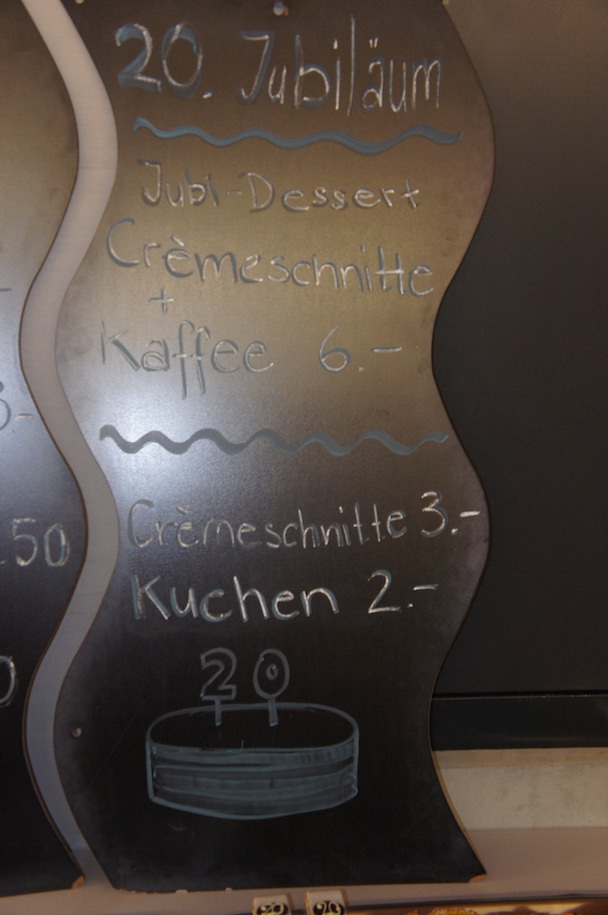 20. Jubiläum
Jubi-Dessert
Crèmeschnitte
+
Kaffee 6.-
Crèmeschnitte 3.-
Kuchen 2.-
20
.50